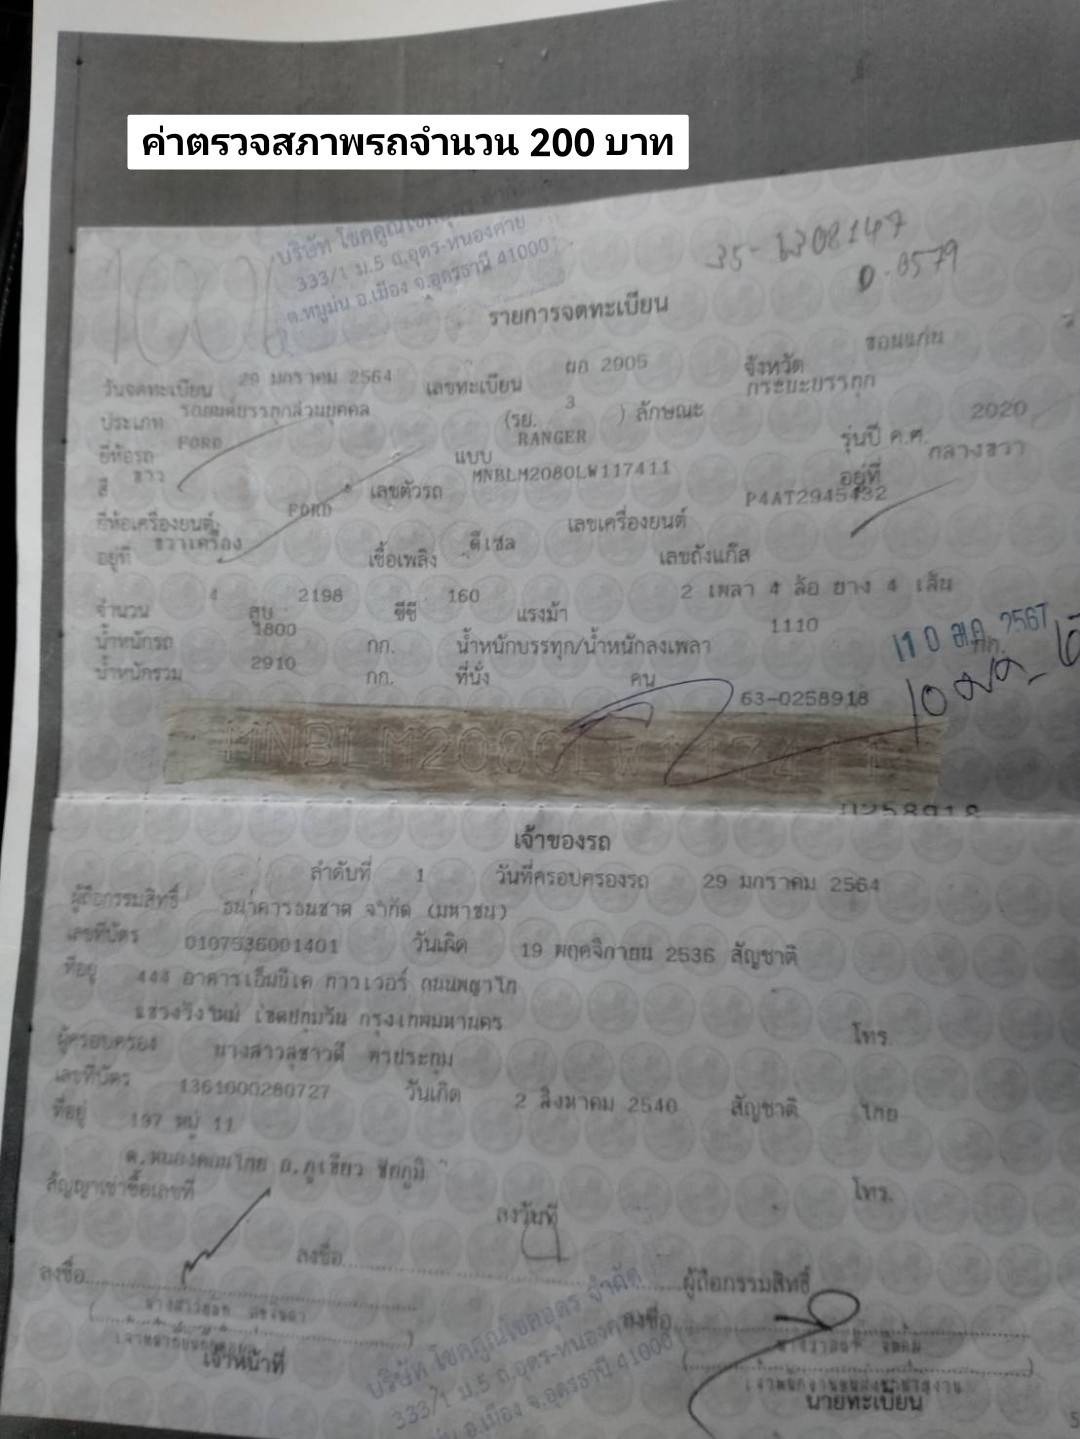 ค่าตรวจสภาพรถจำนวน 200 บาท
บริษัท โชคคูณโชคอุดร
333/1 ม.5 ถ.อุดร-หนองคาย
ต.หมูม่น อ.เมือง จ.อุดรธานี 41000
รายการจดทะเบียน
วันจดทะเบียน 29 มกราคม 2564 เลขทะเบียน ผก 2905 จังหวัด ขอนแก่น
ประเภท รถยนต์บรรทุกส่วนบุคคล (รย. 3 ) ลักษณะ กระบะบรรทุก
ยี่ห้อรถ FORD แบบ RANGER รุ่นปี ค.ศ. 2020
สี ขาว เลขตัวรถ MNBLM2080LW117411 อยู่ที่ กลางขวา
ยี่ห้อเครื่องยนต์ FORD เลขเครื่องยนต์ P4AT2945432
อยู่ที่ ขวาเครื่อง เชื้อเพลิง ดีเซล เลขถังแก๊ส
จำนวน 4 สูบ 2198 ซีซี 160 แรงม้า 2 เพลา 4 ล้อ ยาง 4 เส้น
น้ำหนักรถ 1800 กก. น้ำหนักบรรทุก/น้ำหนักลงเพลา 1110 กก.
น้ำหนักรวม 2910 กก. ที่นั่ง คน
63-0258918
เจ้าของรถ
ลำดับที่ 1 วันที่ครอบครองรถ 29 มกราคม 2564
ผู้ถือกรรมสิทธิ์ ธนาคารธนชาต จำกัด (มหาชน)
เลขที่บัตร 0107536001401 วันเกิด 19 พฤศจิกายน 2536 สัญชาติ
ที่อยู่ 444 อาคารเอ็มบีเค ทาวเวอร์ ถนนพญาไท
แขวงวังใหม่ เขตปทุมวัน กรุงเทพมหานคร โทร.
ผู้ครอบครอง นางสาวสุชาวดี
เลขที่บัตร 1361000280727 วันเกิด 2 สิงหาคม 2540 สัญชาติ ไทย
ที่อยู่ 197 หมู่ 11
ต.หนองคอนไทย อ.ภูเขียว ชัยภูมิ โทร.
สัญญาเช่าซื้อเลขที่ ลงวันที่
ลงชื่อ ผู้ถือกรรมสิทธิ์
ลงชื่อ ลงชื่อ
เจ้าหน้าที่ นายทะเบียน
บริษัท โชคคูณโชคอุดร จำกัด
333/1 ม.5 ถ.อุดร-หนองคาย
อ.เมือง จ.อุดรธานี 41000